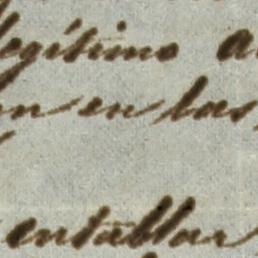 legítimo
en las
entablar